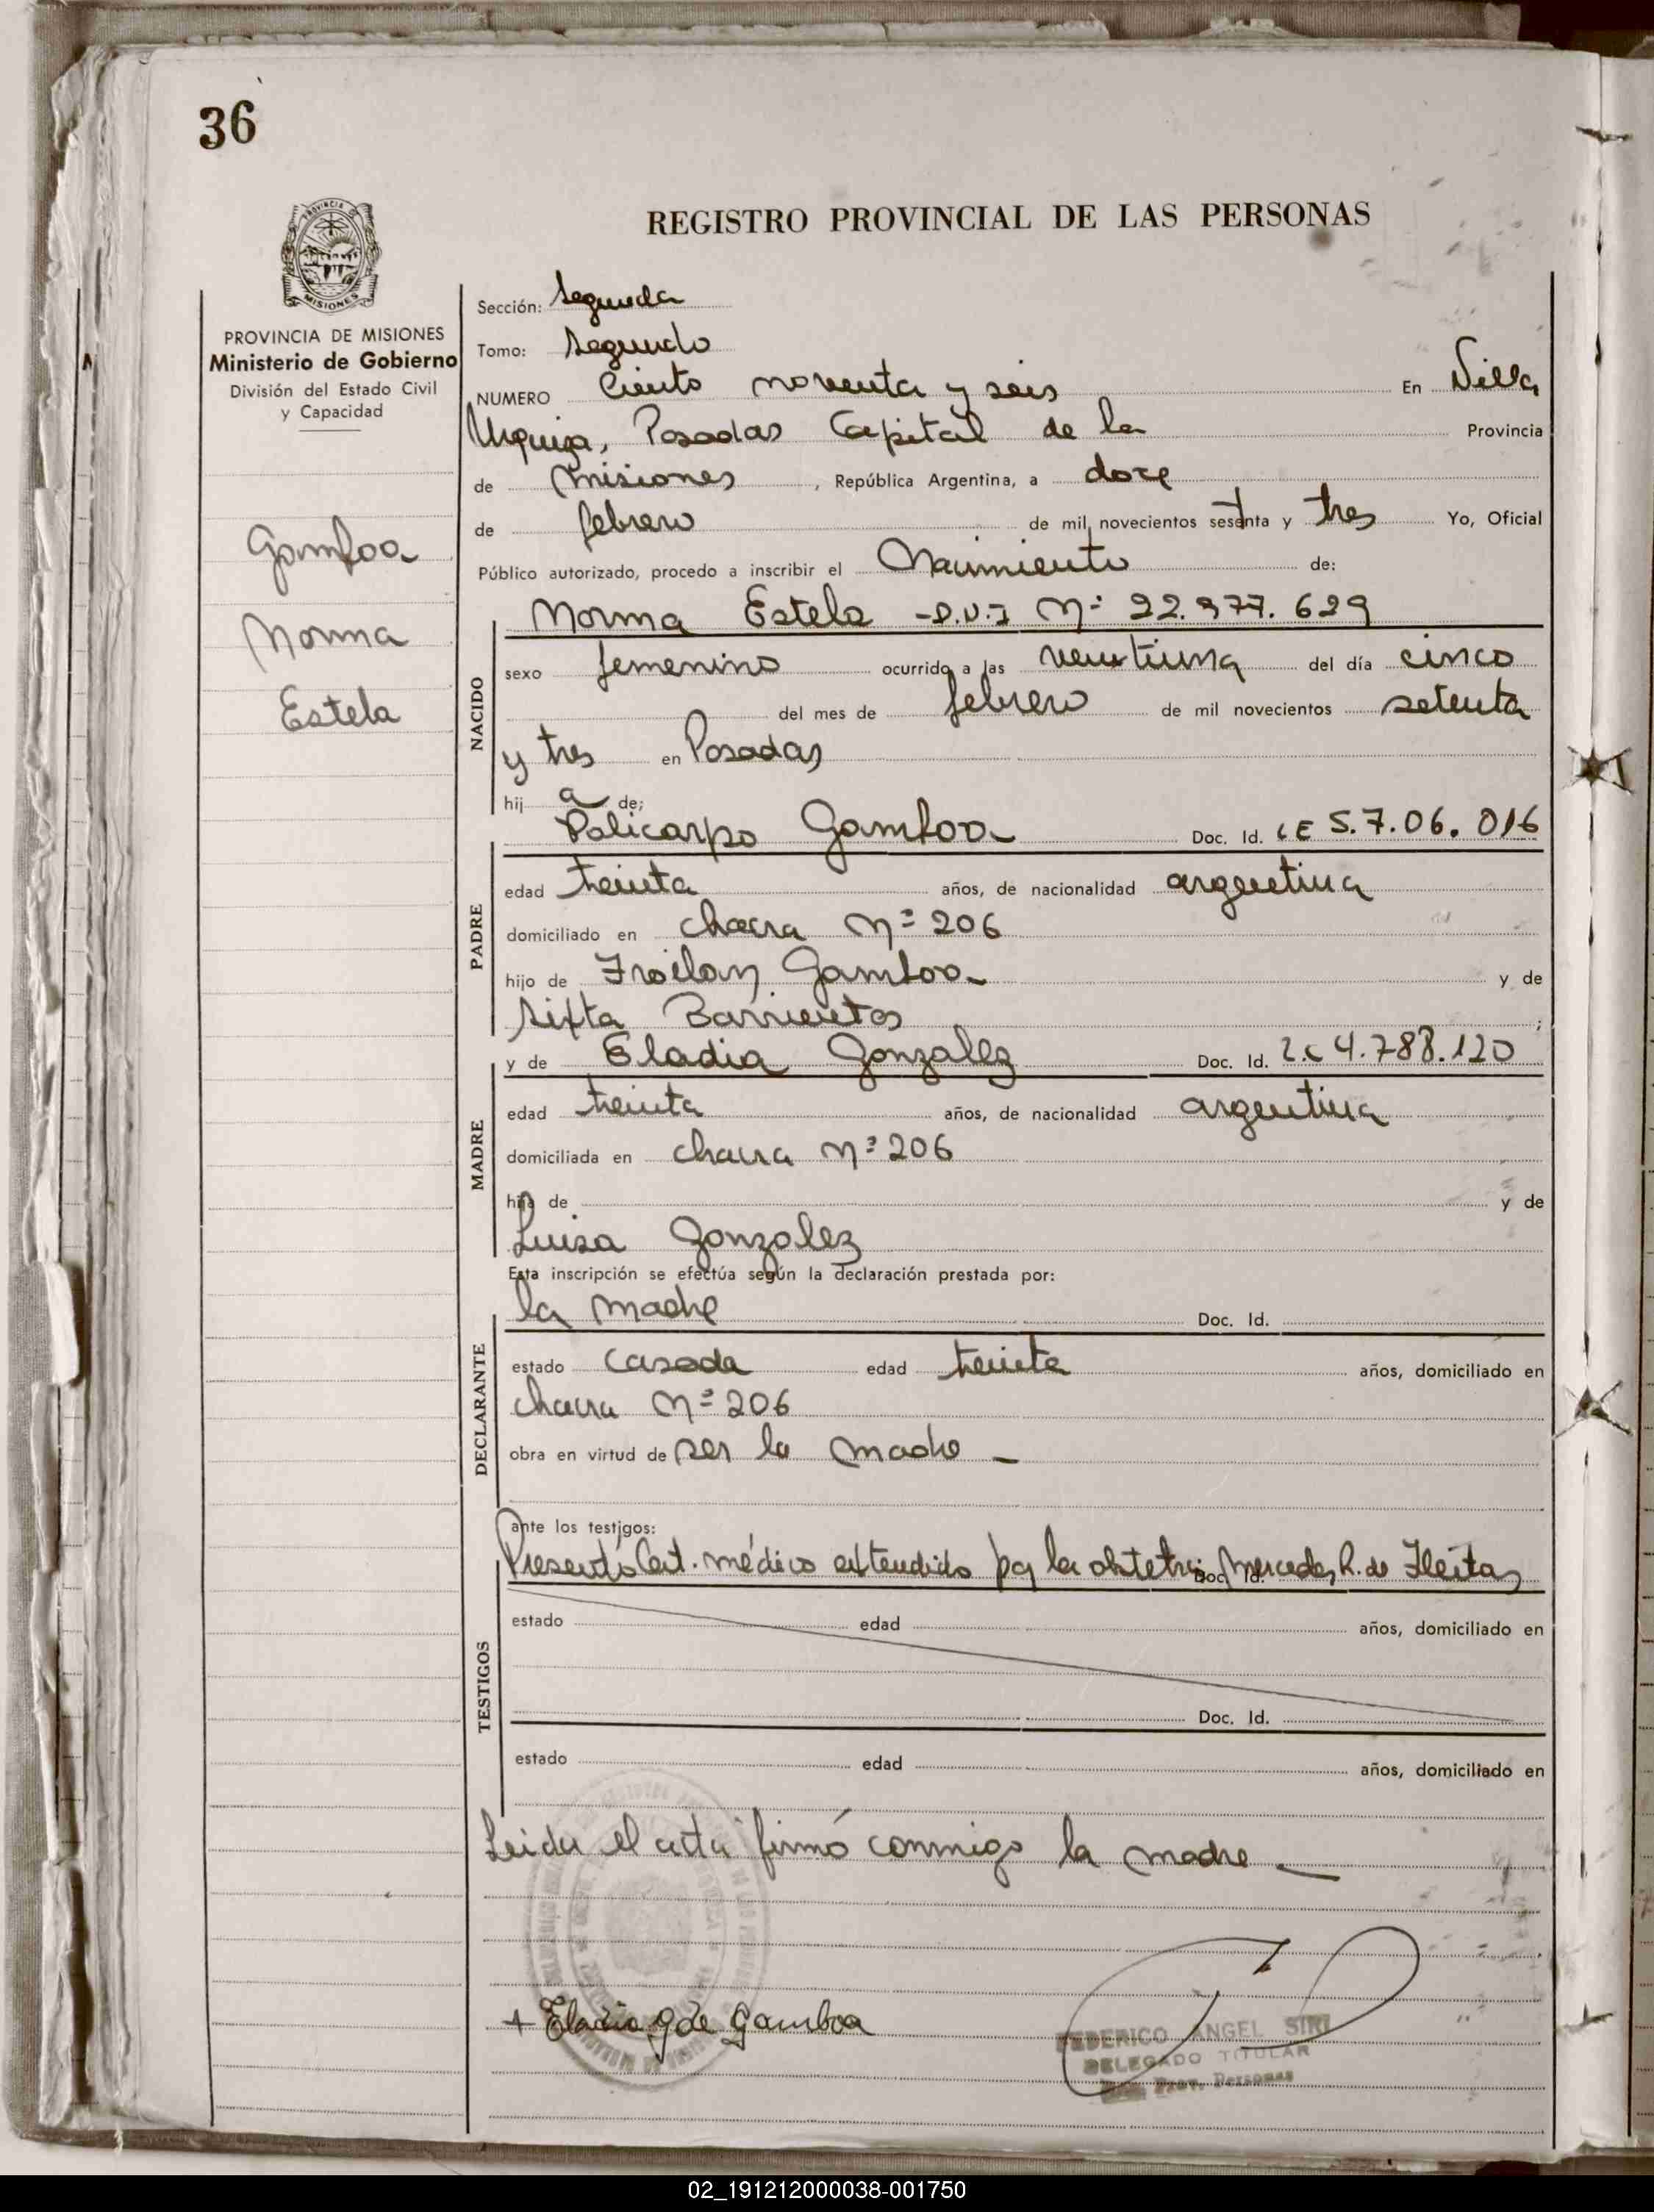 36
REGISTRO PROVINCIAL DE LAS PERSONAS
PROVINCIA DE
MISIONES
PROVINCIA DE MISIONES
Ministerio de Gobierno
División del Estado Civil
y Capacidad
Gamboa
Norma
Estela
Sección: Segunda
Tomo: Segundo
NUMERO Ciento noventa y seis En Villa
Urquiza, Posadas Capital de la Provincia
de Misiones, República Argentina, a doce
de febrero de mil novecientos setenta y tres Yo, Oficial
Público autorizado, procedo a inscribir el Nacimiento de:
Norma Estela - D.N.I Nº 22.977.629
NACIDO
sexo femenino ocurrido a las veintiuna del día cinco
del mes de febrero de mil novecientos setenta
y tres en Posadas
hij a de;
Policarpo Gamboa Doc. Id. LE 5.7.06.016
PADRE
edad treinta años, de nacionalidad argentina
domiciliado en chacra Nº 206
hijo de Froilan Gamboa y de
Sixta Barrientos ;
y de Eladia Gonzalez Doc. Id. L.C 4.788.120
MADRE
edad treinta años, de nacionalidad argentina
domiciliada en chacra Nº 206
hija de y de
Luisa Gonzalez
Esta inscripción se efectúa según la declaración prestada por:
la madre Doc. Id.
DECLARANTE
estado casada edad treinta años, domiciliado en
chacra Nº 206
obra en virtud de ser la madre -
ante los testigos:
Presentó Cert. médico extendido por la obstetriz Mercedes R. de Fleitas Doc. Id.
TESTIGOS
estado edad años, domiciliado en
Doc. Id.
estado edad años, domiciliado en
Leida el acta firmó conmigo la madre -
+ Eladia G de Gamboa
FEDERICO ANGEL SIRI
DELEGADO TITULAR
Prov. Personas
02_191212000038-001750